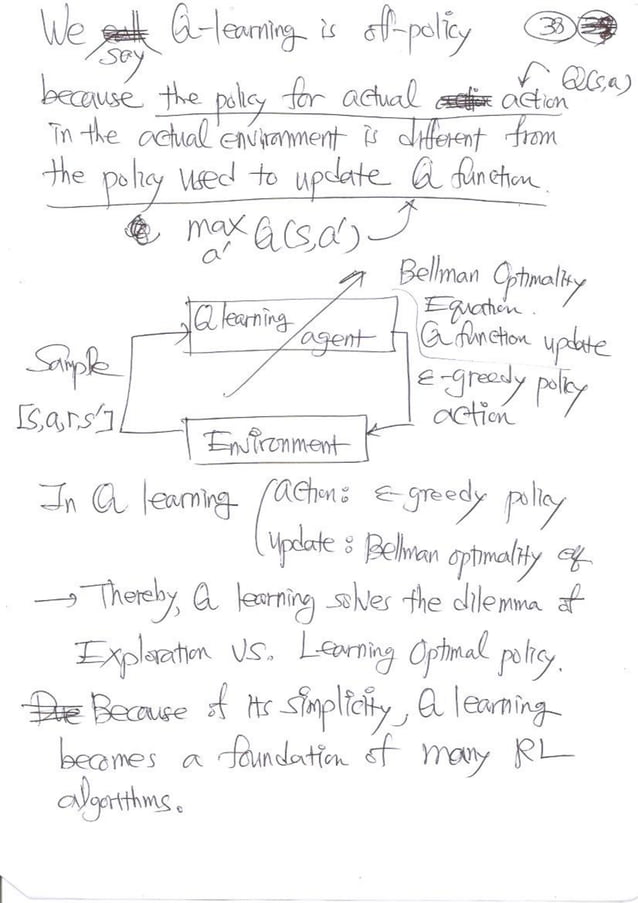 We say Q-learning is off-policy
38
because the policy for actual action
Q(s,a)
in the actual environment is different from
the policy used to update Q function.
max Q(s,a')
a'
Bellman Optimality
Equation.
Q function update
Q learning
agent
Sample
[s,a,r,s']
ε-greedy policy
action
Environment
In Q learning action: ε-greedy policy
update: Bellman optimality eq
→ Thereby, Q learning solves the dilemma of
Exploration VS. Learning Optimal policy.
Because of its simplicity, Q learning
becomes a foundation of many RL
algorithms.